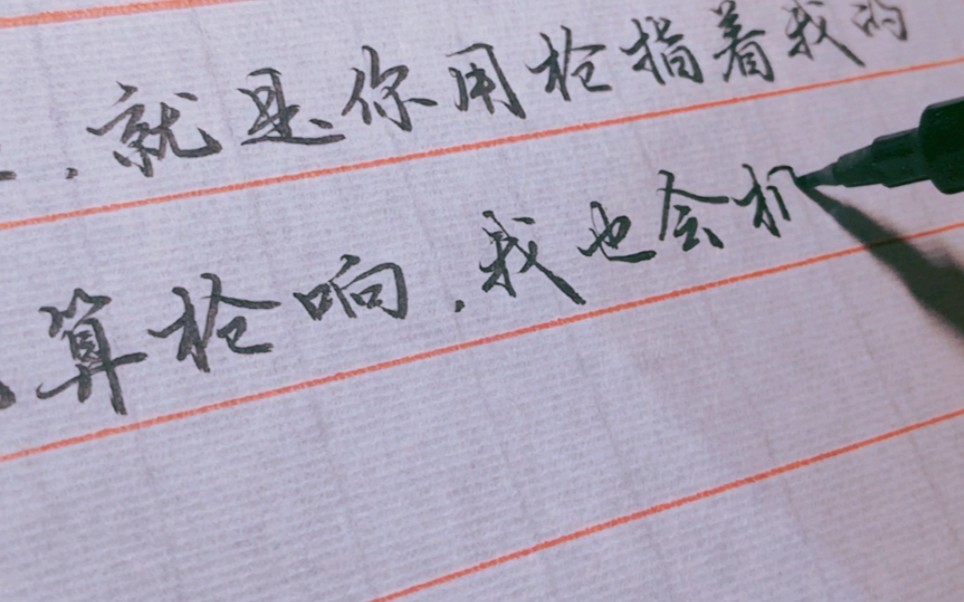 ,就是你用枪指着我的
算枪响,我也会